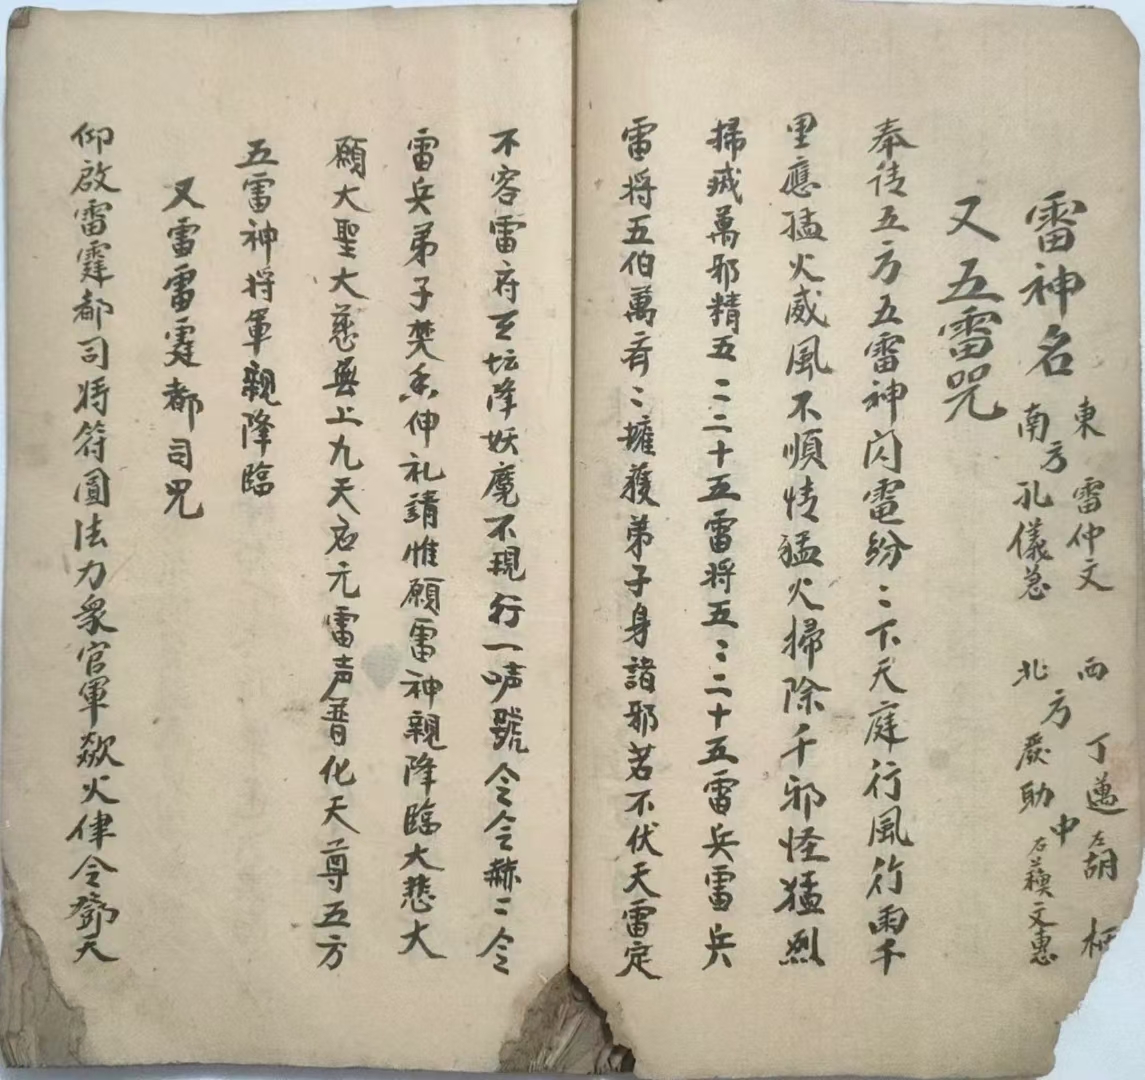 雷神名
東 雷仲文 西 丁邁 左胡 栢
南方孔儀 北方 嚴助 中 右蘓文惠
又五雷咒
奉請五方五雷神閃電紛〻下天庭行風行雨千
里應猛火威風不順情猛火掃除千邪怪猛烈
掃㓕萬邪精五〻二十五雷将五〻二十五雷兵雷兵
雷将五伯萬齊〻擁護弟子身諸邪若不伏天雷定
不容雷府王坛降妖魔不現行一声號令令赫〻令
雷兵弟子焚香伸礼請惟願雷神親降臨大悲大
願大聖大慈無上九天応元雷声普化天尊五方
五雷神将軍親降臨
又雷雷霆都司咒
仰啟雷霆都司将符圖法力衆官軍欻火律令鄧天